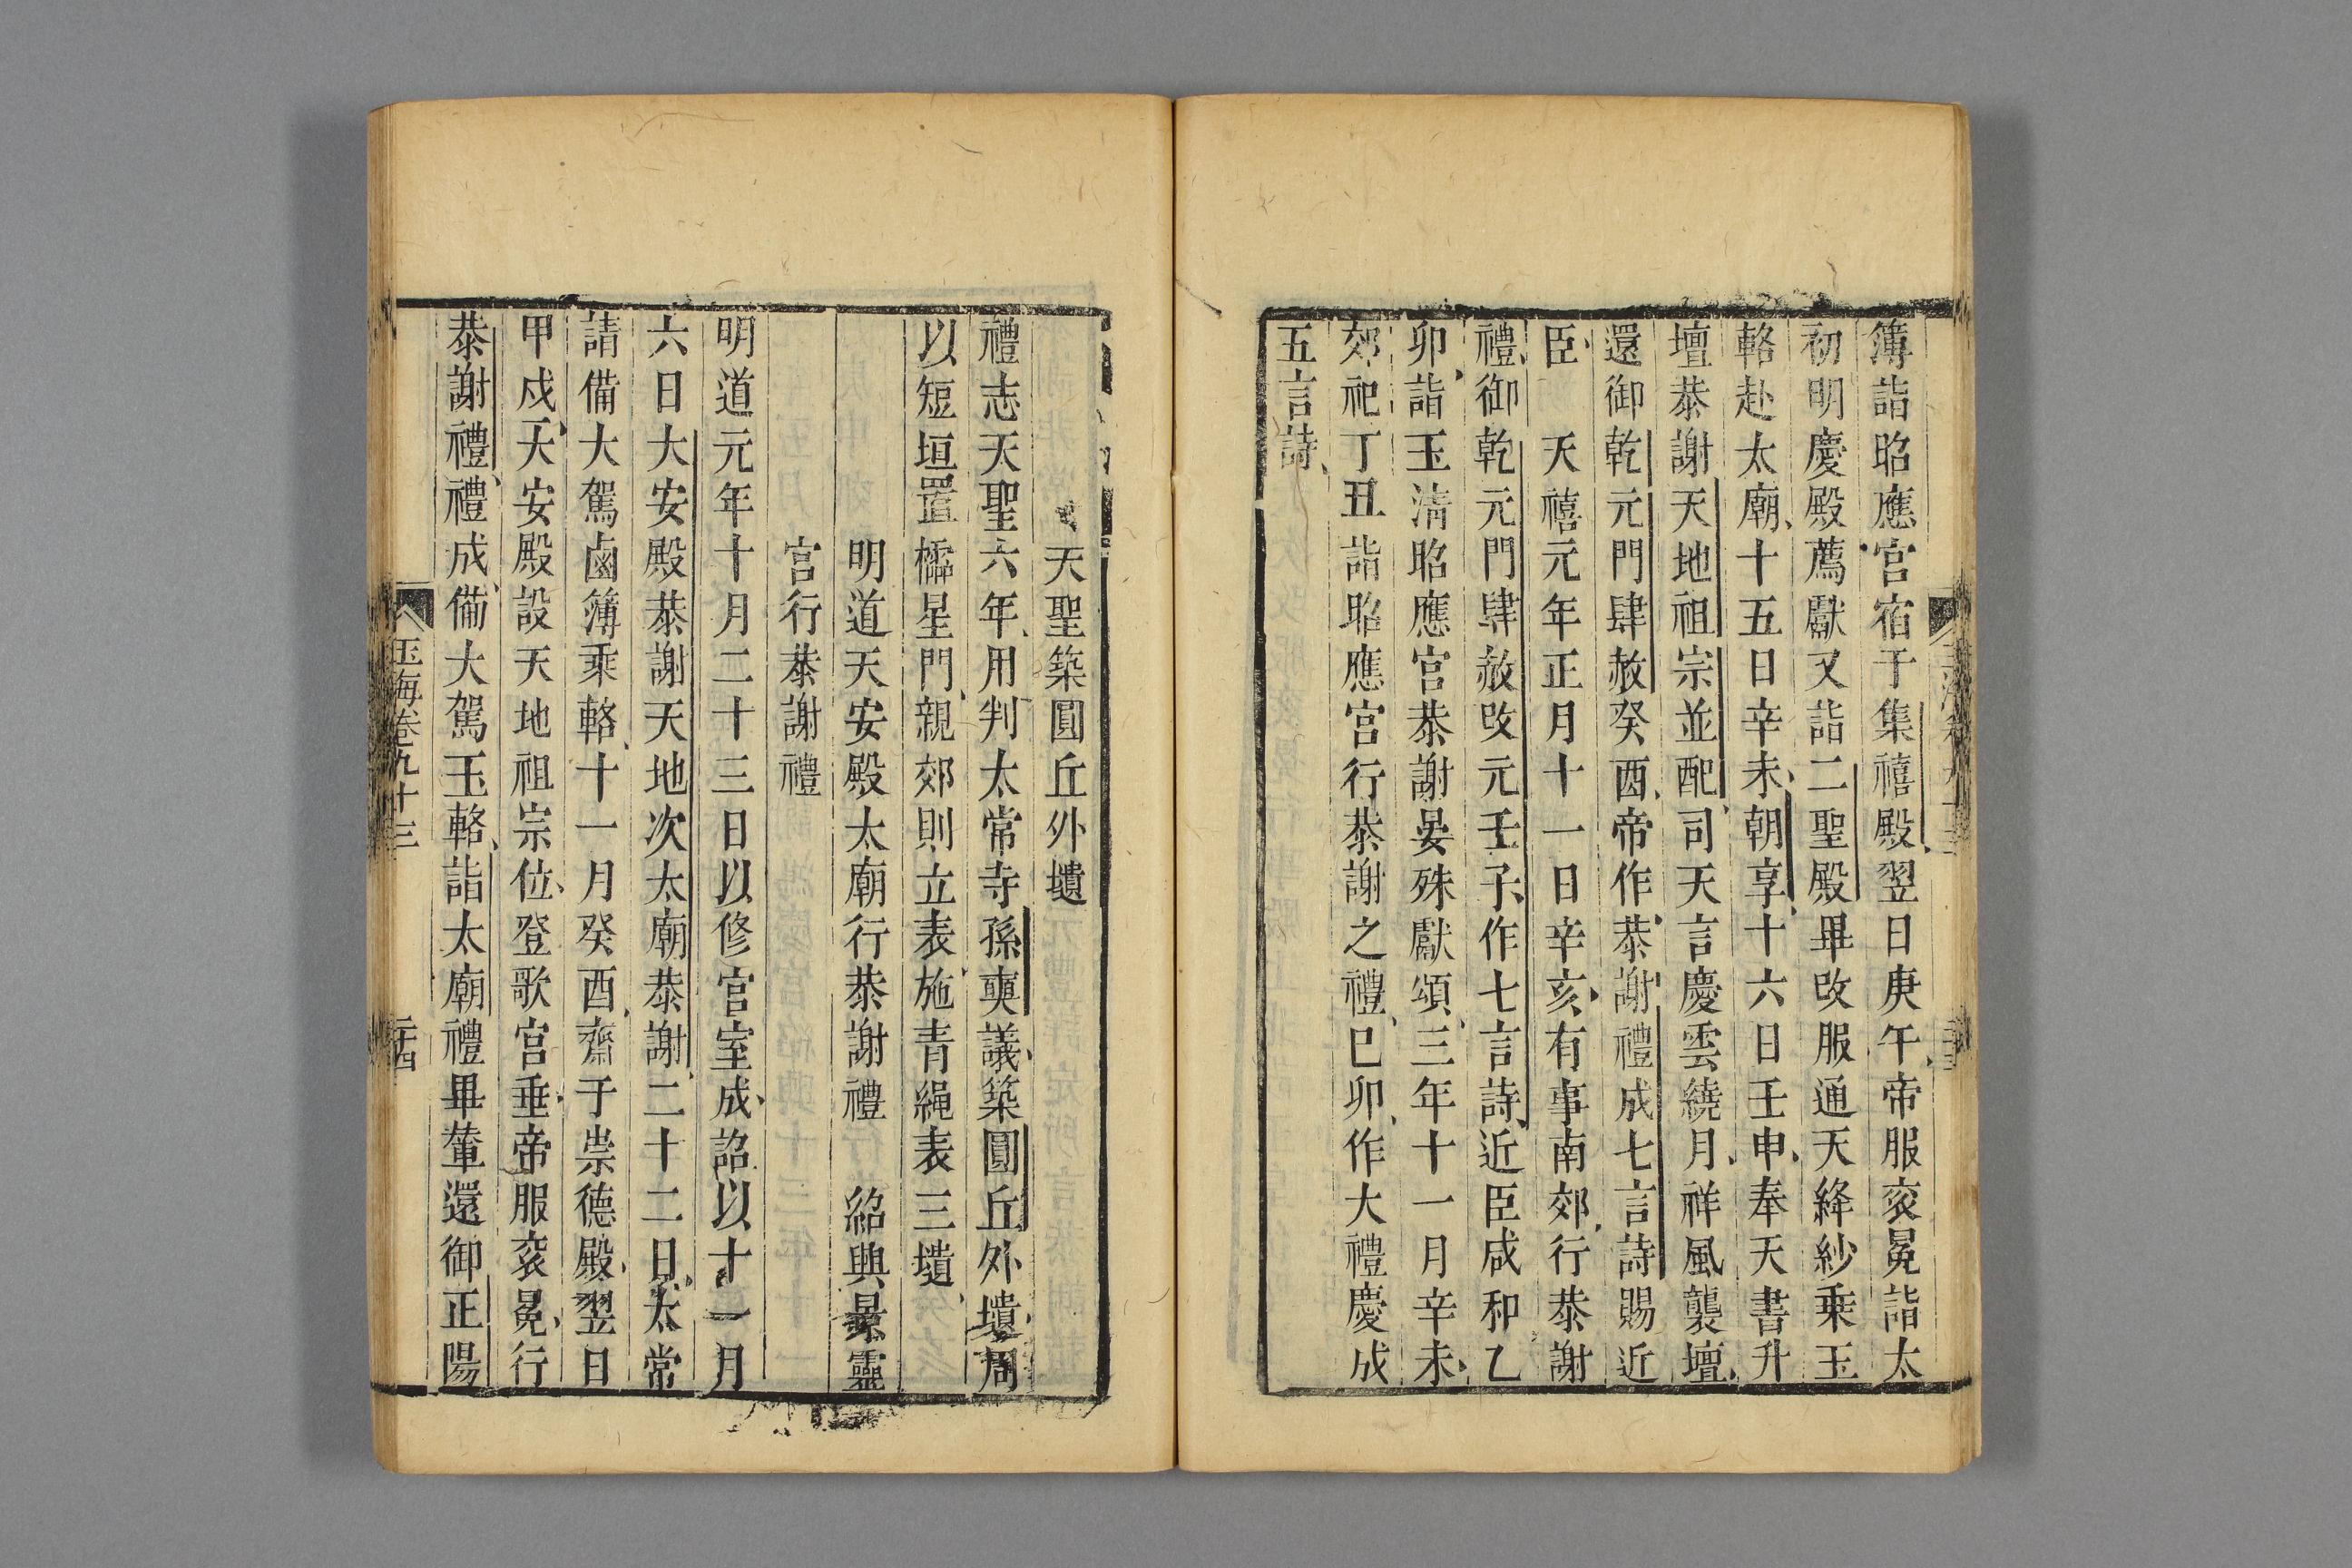 簿詣昭應宮宿于集禧殿翌日庚午帝服衮冕詣太
初明慶殿薦獻又詣二聖殿畢改服通天絳紗乗玉
輅赴太廟十五日辛未朝享十六日壬申奉天書升
壇恭謝天地祖宗並配司天言慶雲繞月祥風襲壇
還御乾元門肆赦癸酉帝作恭謝禮成七言詩賜近
臣　天禧元年正月十一日辛亥有事南郊行恭謝
禮御乾元門肆赦改元壬子作七言詩近臣咸和乙
卯詣玉清昭應宮恭謝晏殊獻頌三年十一月辛未
郊祀丁丑詣昭應宮行恭謝之禮巳卯作大禮慶成
五言詩
天聖築圓丘外壝
禮志天聖六年用判太常寺孫奭議築圓丘外壝周
以短垣置櫺星門親郊則立表施青繩表三壝
明道天安殿太廟行恭謝禮　紹興景靈
宮行恭謝禮
明道元年十月二十三日以修官室成詔以十一月
六日大安殿恭謝天地次太廟恭謝二十二日太常
請備大駕鹵簿乘輅十一月癸酉齋于崇德殿翌日
甲戍天安殿設天地祖宗位登歌宮垂帝服衮冕行
恭謝禮禮成備大駕玉輅詣太廟禮畢輦還御正陽
玉海卷九十三
二十四